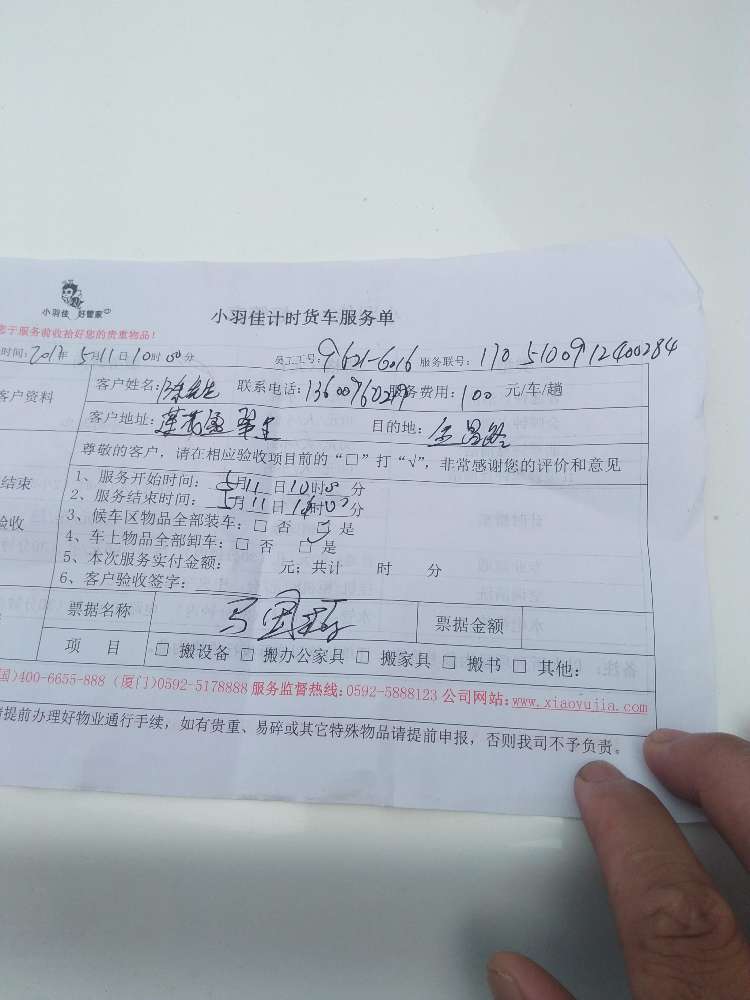 小羽佳 好管家
小羽佳计时货车服务单
您于服务前收拾好您的贵重物品!
时间:2017年 5月11日10时00分 员工工号:9621-6016 服务联号:1705100912400284
客户资料 客户姓名:徐先生 联系电话:13600760219 服务费用:100 元/车/趟
客户地址:莲花 目的地:
尊敬的客户,请在相应验收项目前的“□”打“√”,非常感谢您的评价和意见
结束
验收
1、服务开始时间: 5月11日10时00分
2、服务结束时间: 5月11日 时00分
3、候车区物品全部装车:□ 否 □ 是
4、车上物品全部卸车:□ 否 □ 是
5、本次服务实付金额: 元;共计 时 分
6、客户验收签字:
票据名称 票据金额
项 目 □ 搬设备 □ 搬办公家具 □ 搬家具 □ 搬书 □ 其他:
国)400-6655-888 (厦门)0592-5178888 服务监督热线:0592-5888123 公司网站:www.xiaoyujia.com
请提前办理好物业通行手续,如有贵重、易碎或其它特殊物品请提前申报,否则我司不予负责。